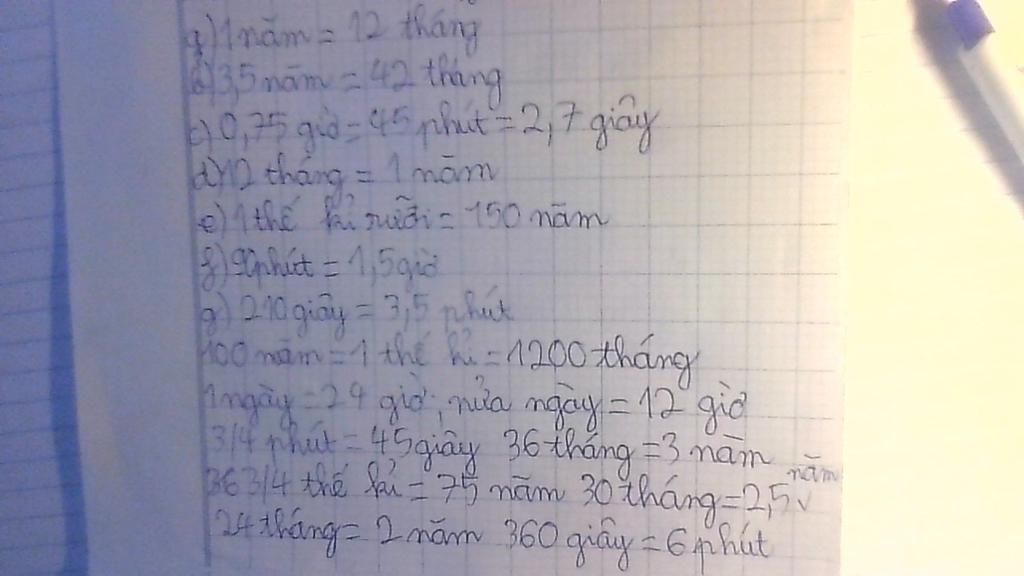 a) 1 năm = 12 tháng
b) 3,5 năm = 42 tháng
c) 0,75 giờ = 45 phút = 2,7 giây
d) 12 tháng = 1 năm
e) 1 thế kỉ rưỡi = 150 năm
f) 90 phút = 1,5 giờ
g) 210 giây = 3,5 phút
100 năm = 1 thế kỉ = 1200 tháng
1 ngày = 24 giờ, nửa ngày = 12 giờ
3/4 phút = 45 giây 36 tháng = 3 năm
36 3/4 thế kỉ = 75 năm 30 tháng = 2,5 năm
24 tháng = 2 năm 360 giây = 6 phút